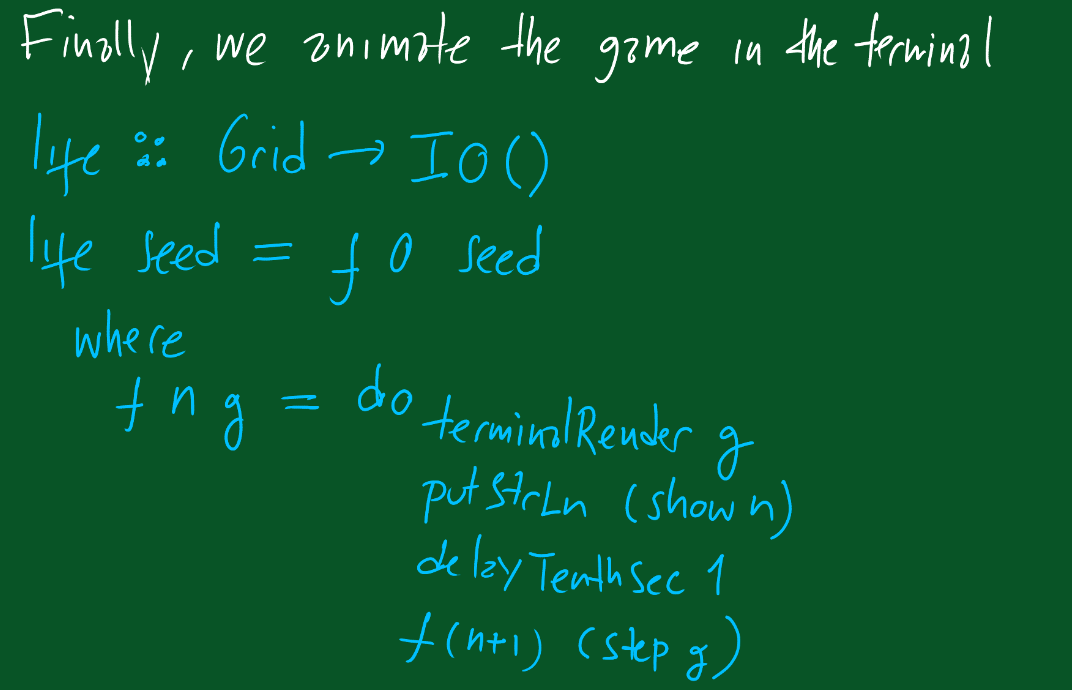 Finally, we animate the game in the terminal
life :: Grid → IO ()
life seed = f 0 seed
where
f n g = do
terminalRender g
putStrLn (show n)
delayTenthSec 1
f (n+1) (step g)